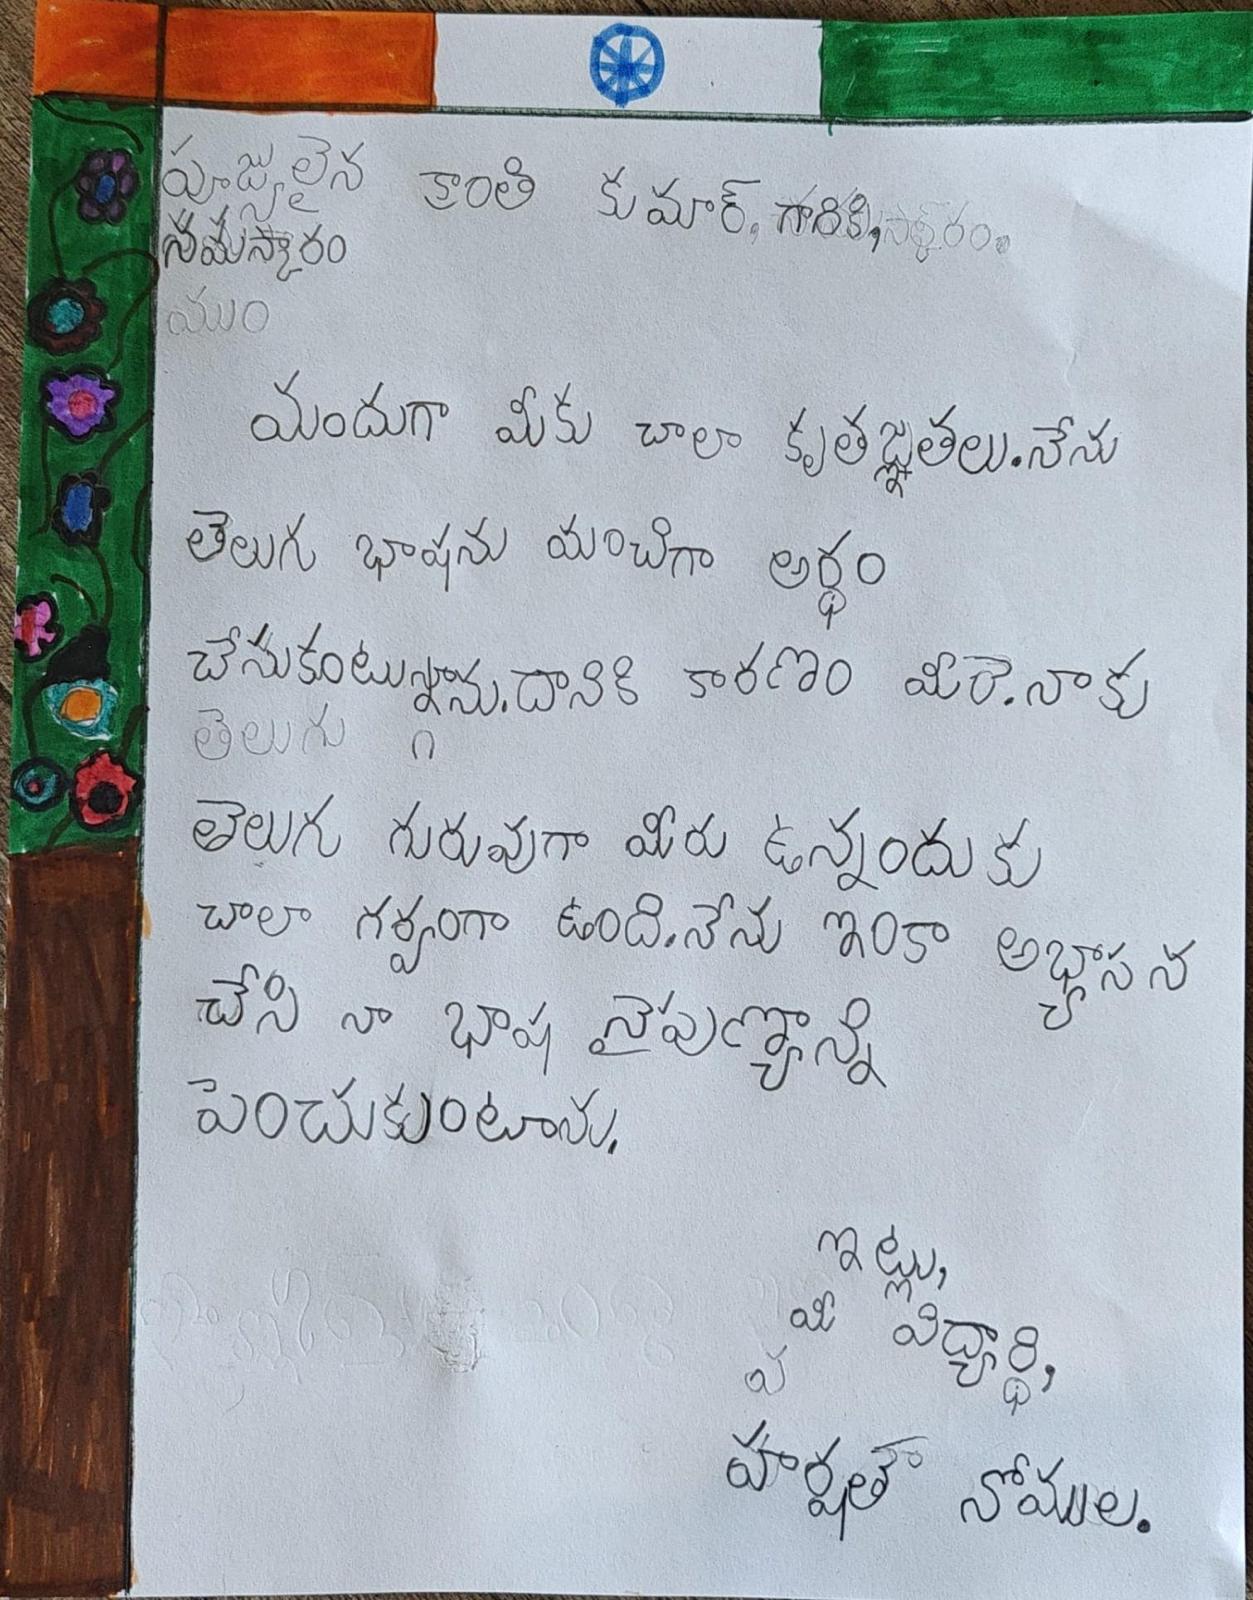 పూజ్యులైన కాంతి కుమార్, గారికి,
నమస్కారం
ముం
ముందుగా మీకు చాలా కృతజ్ఞతలు.నేను
తెలుగు భాషను మంచిగా అర్థం
చేసుకుంటున్నాను.దానికి కారణం మీరె.నాకు
తెలుగు
తెలుగు గురువుగా మీరు ఉన్నందుకు
చాలా గర్వంగా ఉంది.నేను ఇంకా అభ్యాసన
చేసి నా భాష నైపుణ్యాన్ని
పెంచుకుంటాను.
ఇట్లు,
మీ విద్యార్థి,
నోముల.